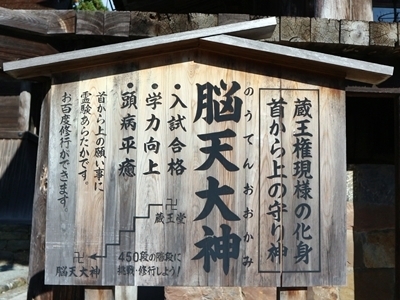 蔵王権現様の化身
首から上の守り神
脳天大神
のうてんおおかみ
・入試合格
・学力向上
・頭病平癒
首から上の願い事に
霊験あらたかです。
お百度修行ができます
卍
蔵王堂
450段の階段に
挑戦・修行しよう!
卍
脳天大神